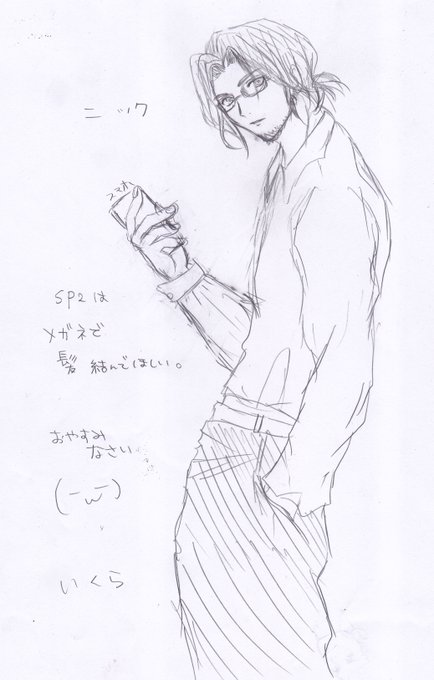 ニック
スマホ
SP2は
メガネで
髪 結んでほしい。
おやすみ
なさい
(-ω-)
いくら